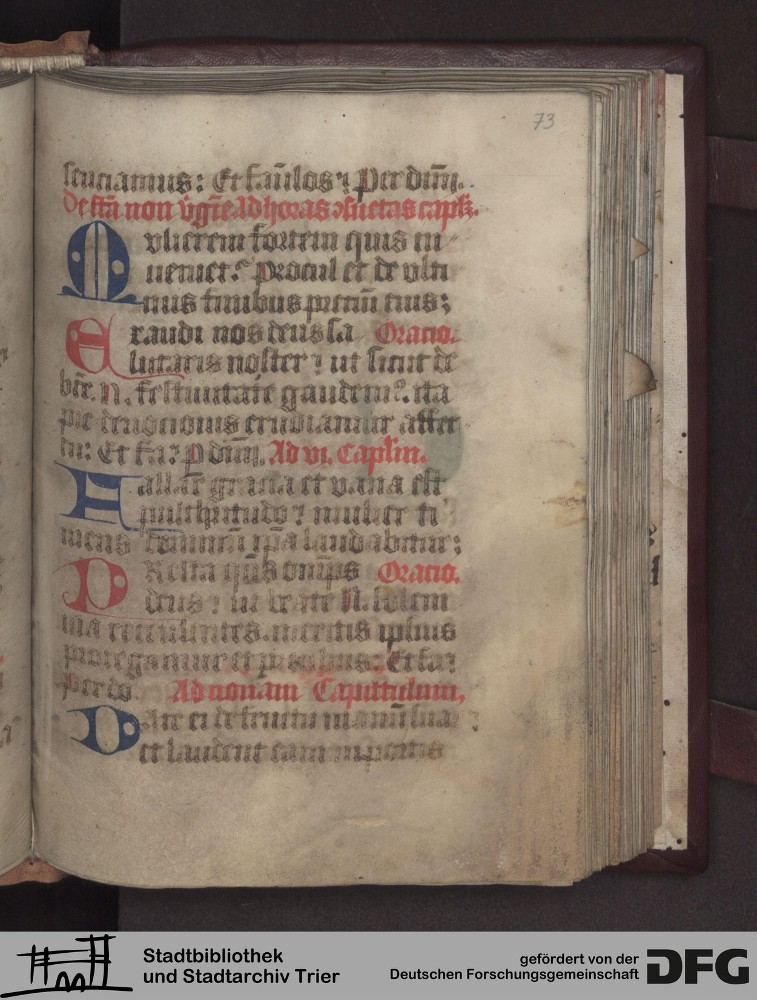 73
senciamus: Et famlos ⁊ Per dnm.
De sca non vgie Ad horas ↄsuetas caplm.
Mulierem fortem quis in
ueniet? Procul et de ulti
mis finibus precium eius:
Exaudi nos deus sa Oracio.
lutaris noster: ut sicut de
bte. N. festiuitate gaudemꝰ. ita
pie deuocionis erudiamur affec
tu: Et fa: p dnm. Ad vi. Caplm.
Fallax gracia et vana est
pulchritudo: mulier ti
mens dominum ipa laudabitur:
Presta qs omps Oracio.
deus: ut beate N. solem
nia recensentes. meritis ipsius
protegamur et precibus: Et fa:
Per do. Ad nonam Capitulum,
Date ei de fructu manuum suar:
et laudent eam in portis
Stadtbibliothek
und Stadtarchiv Trier
gefördert von der
Deutschen Forschungsgemeinschaft
DFG